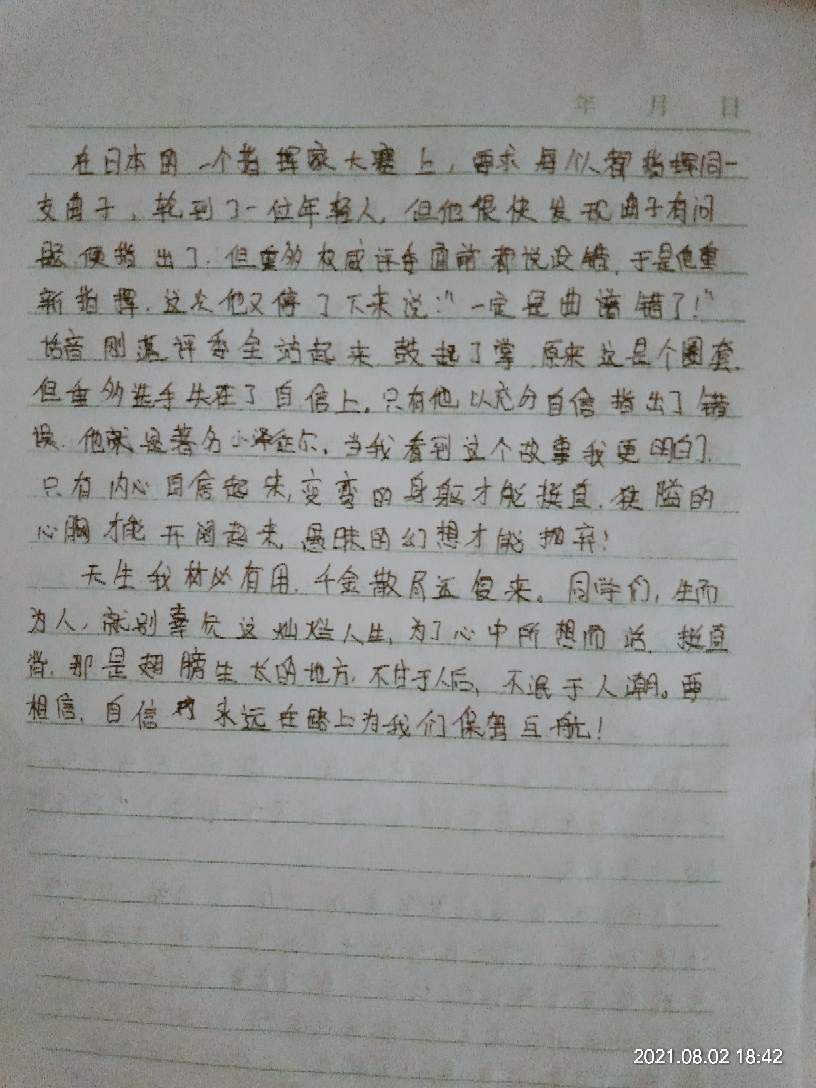 年 月 日
在日本的一个指挥家大赛上，要求每个人都指挥同一
支曲子，轮到了一位年轻人，但他很快发现曲子有问
题便指出了.但重多权威评委面前都说没错，于是他重
新指挥.这次他又停了下来说："一定是曲谱错了！"
话音刚落评委全站起来.鼓起了掌.原来这是个圈套.
但重多选手失在了自信上。只有他以充分自信指出了错
误.他就是著名小泽征尔，当我看到这个故事我更明白了.
只有内心自信起来,变弯的身躯才能挺直.狭隘的
心胸才能开阔起来.愚昧的幻想才能抛弃！
天生我材必有用.千金散尽还复来。同学们，生而
为人，就别辜负这灿烂人生，为了心中所想而活.挺直
背.那是翅膀生长的地方.不甘于人后，不泯于人潮。要
相信，自信永远在路上为我们保驾互航！
2021.08.02 18:42